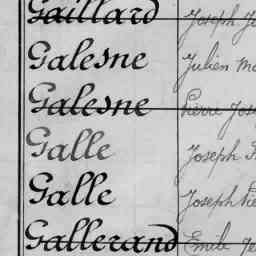 Gaillard Joseph
Galesne Julien
Galesne Pierre
Galle Joseph
Galle Joseph
Gallerand Emile